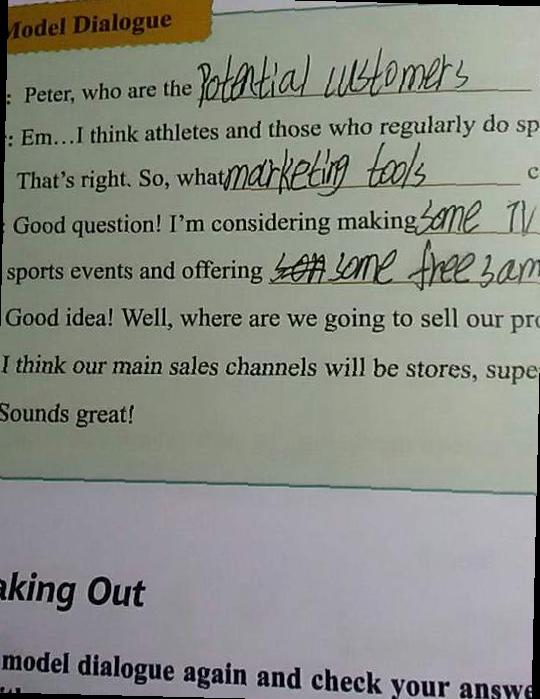 Model Dialogue
: Peter, who are the Potential customers
: Em...I think athletes and those who regularly do sp
That's right. So, what marketing tools c
: Good question! I'm considering making some TV
sports events and offering some free sam
Good idea! Well, where are we going to sell our pro
I think our main sales channels will be stores, supe
Sounds great!
aking Out
model dialogue again and check your answe